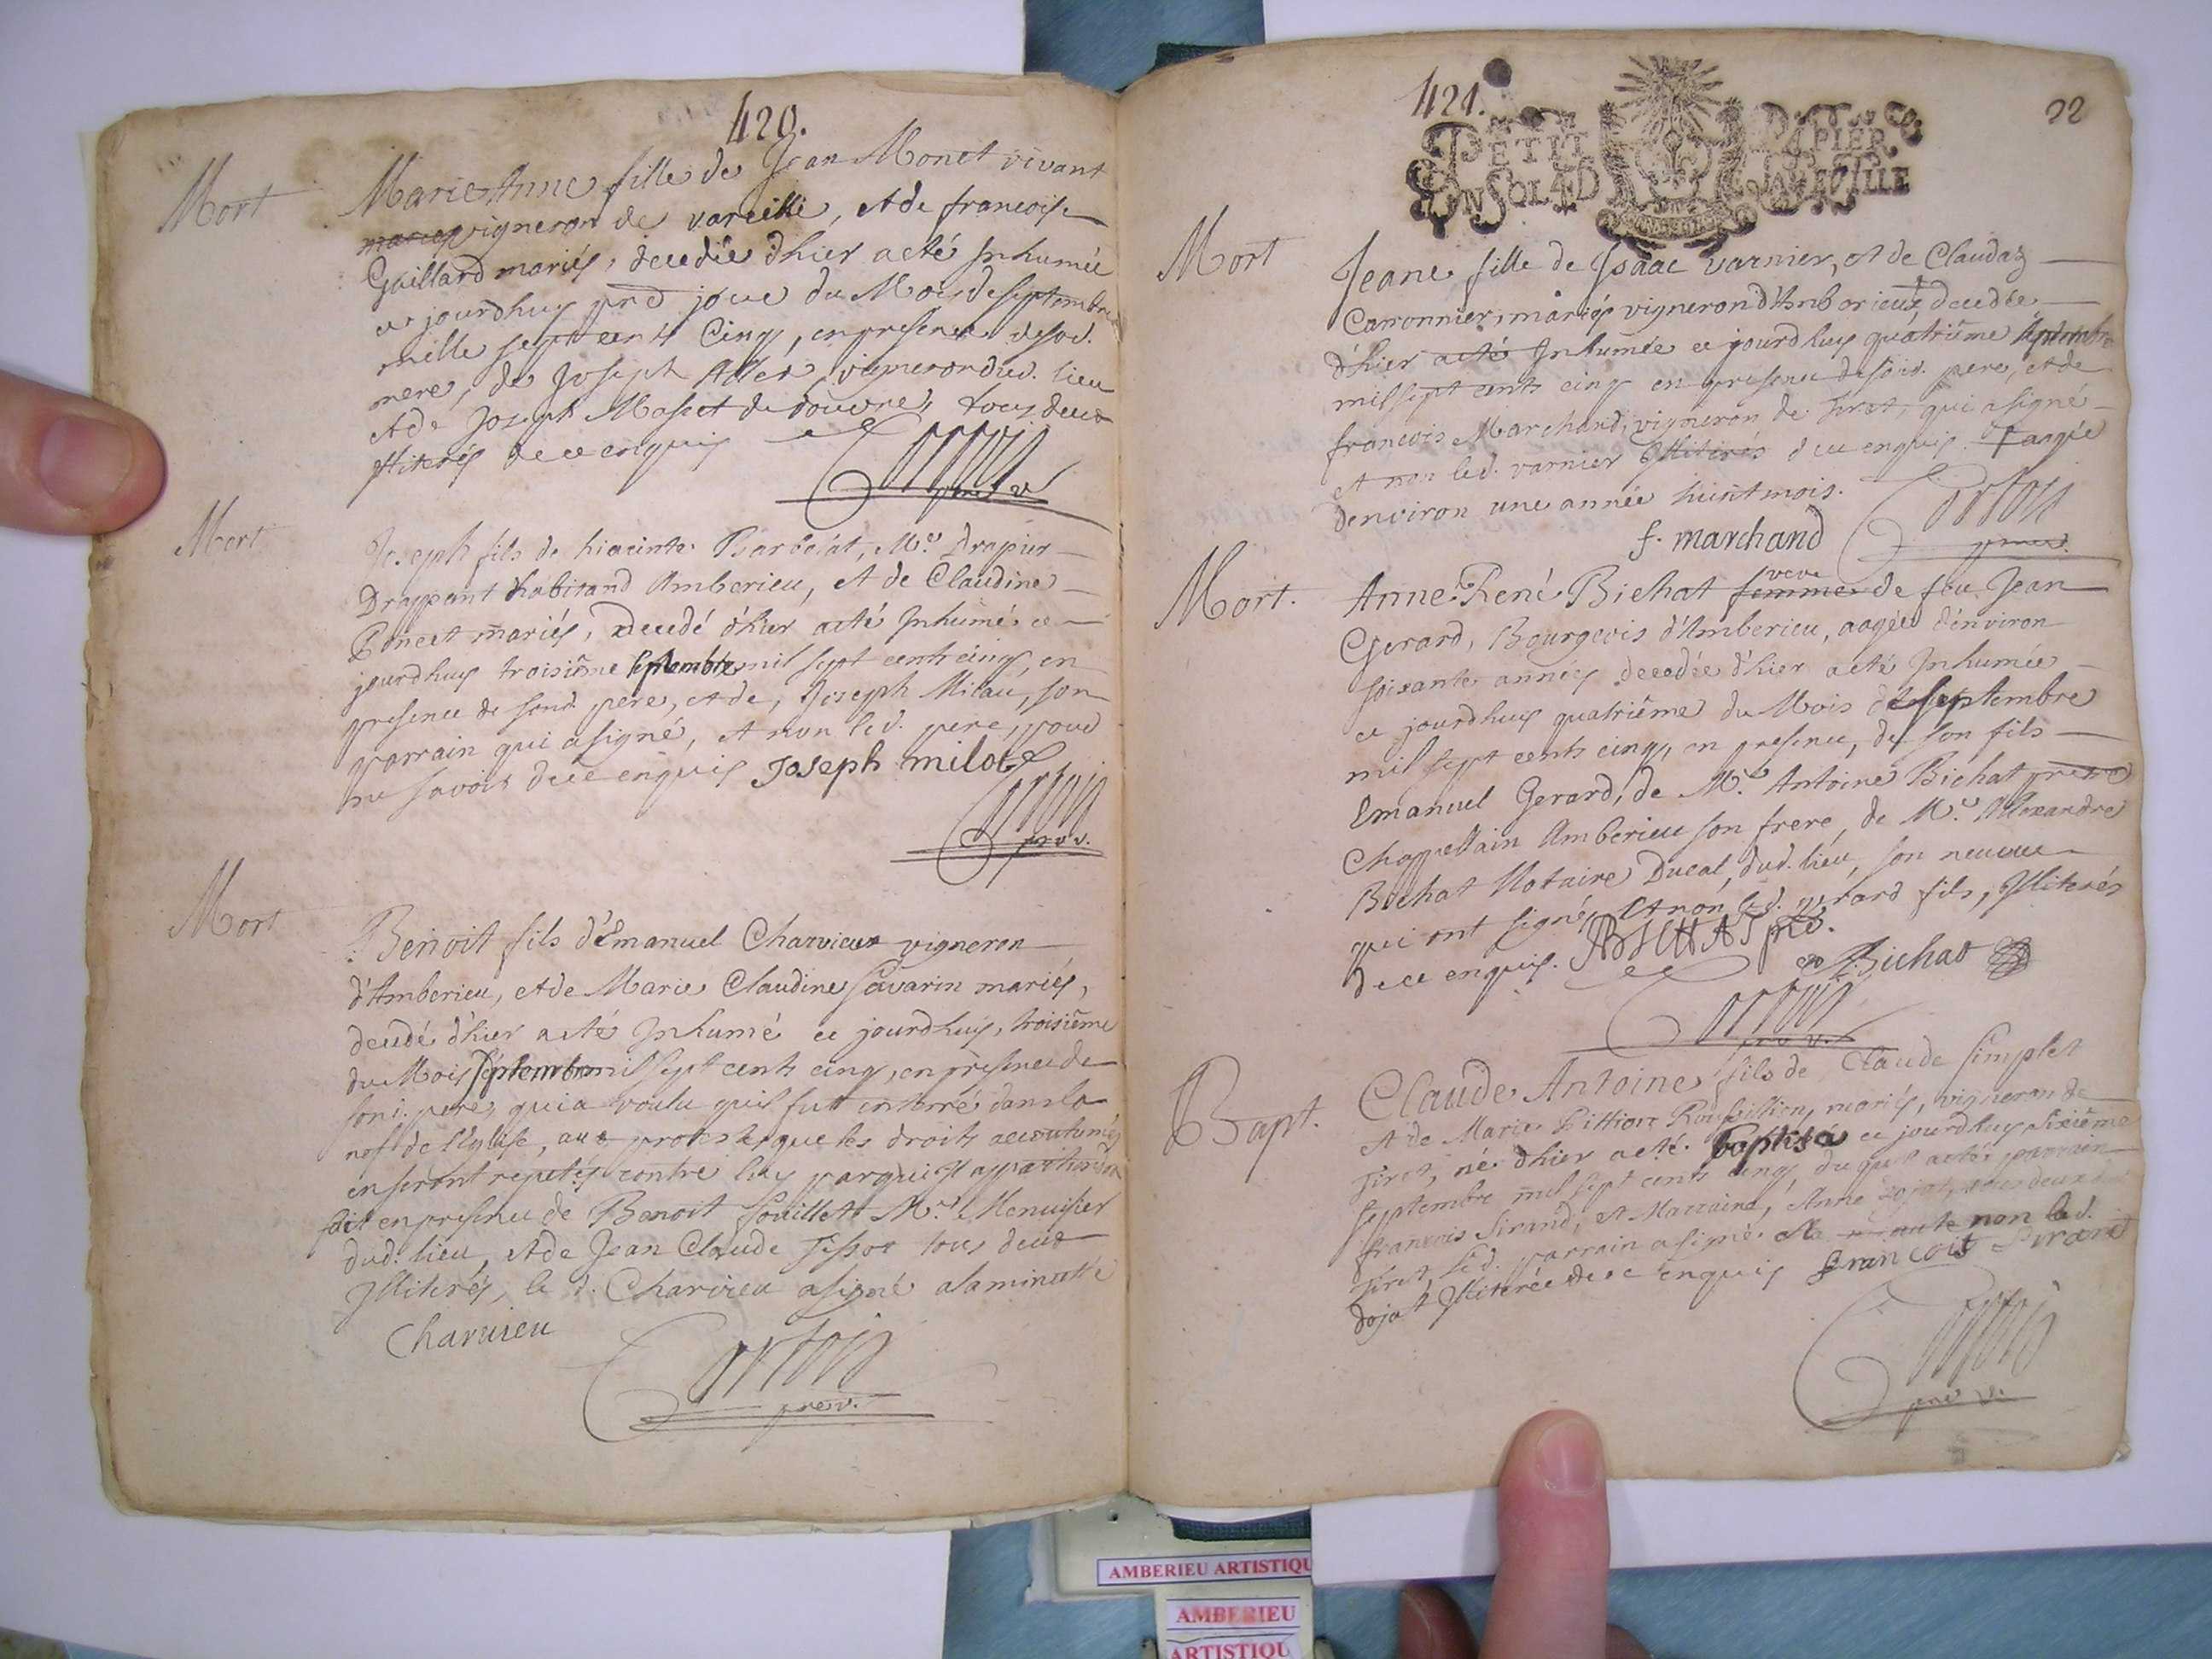 420.
Mort
Marie Anne fille de Jean Monet vivant
vigneron de vareille, et de francoise
Gaillard mariés, decedée d'hier acté Inhumée
ce jourdhuy jour du Mois de septembre
mille sept cents Cinq, en presence de sad.
mere, de Joseph vigneron dud. lieu
et de Joseph Masset de douvre, tous deux
Illiterés de ce enquis
Cortois
Mort
Joseph fils de hiacinte Barbelat, Me. Drapier
Drappant habitand Amberieu, et de Claudine
Poncet mariés, decedé d'hier acté Inhumé ce
jourdhuy troisième septembre mil sept cents cinq, en
presence de sond. pere, et de, Joseph Milau, son
parrain qui a signé, et non led. pere, pour
ne savoir de ce enquis Joseph milot
Cortois
Mort
Benoit fils d'Emanuel Charvieux vigneron
d'Amberieu, et de Marie Claudine Savarin mariés,
decedé d'hier acté Inhumé ce jourdhuy, troisième
du Mois septembre mil sept cents cinq, en presence de
son d. pere, qui a voulu quil fut enterré dans la
nef de l'Eglise, aux proteste que les droits accoutumés
en seront repetés contre luy par qui Il appartiendra
fait en presence de Benoit Souillet Me. Menuisier
dud. lieu, et de Jean Claude Tissot tous deux
Illiterés, le d. Charvieu a signé a la minutte
Charvieu
Cortois
421.
22
PETIT PAPIER
UN SOL 4 D LA FEUILLE
Mort
Jeane fille de Isaac varnier, et de Claudaz
Carronnier, mariés vigneron d'Amborieux, decedée
d'hier acté Inhumée ce jourdhuy quatrième septembre
mil sept cents cinq en presence de sond. pere, et de
francois Marchand, vigneron de Tiret, qui a signé
et non led. varnier Illiterés de ce enquis. aagée
denviron une année huict mois.
f. marchand
Cortois
Mort.
Anne René Bichat femme veve de feu Jean
Gerard, Bourgeois d'Amberieu, aagée d'environ
soixante années decedée d'hier acté Inhumée
ce jourdhuy quatrième du Mois de septembre
mil sept cents cinq, en presence, de son fils
Emanuel Gerard, de Me. Antoine Bichat pretre
Chappellain Amberieu son frere, de Me. Alexandre
Bichat Notaire Ducal, dud. lieu, son neuveu
qui ont signé, et non led. gerard fils, Illiterés
de ce enquis. BICHAT
Bichat
Cortois
Bapt.
Claude Antoine fils de Claude simplet
et de Marie Pittion Roussillion, mariés, vigneron de
Tiret, né d'hier acté. Baptisé ce jourdhuy sixième
septembre mil sept cents cinq, du quel acté parrain
francois Sirand, et Marraine, Anne Dojat, tous deux de
Tiret, led. parrain a signé, non lad.
Dojat Illiterée de ce enquis francois Sirand
Cortois
AMBERIEU ARTISTIQU
AMBERIEU
ARTISTIQU